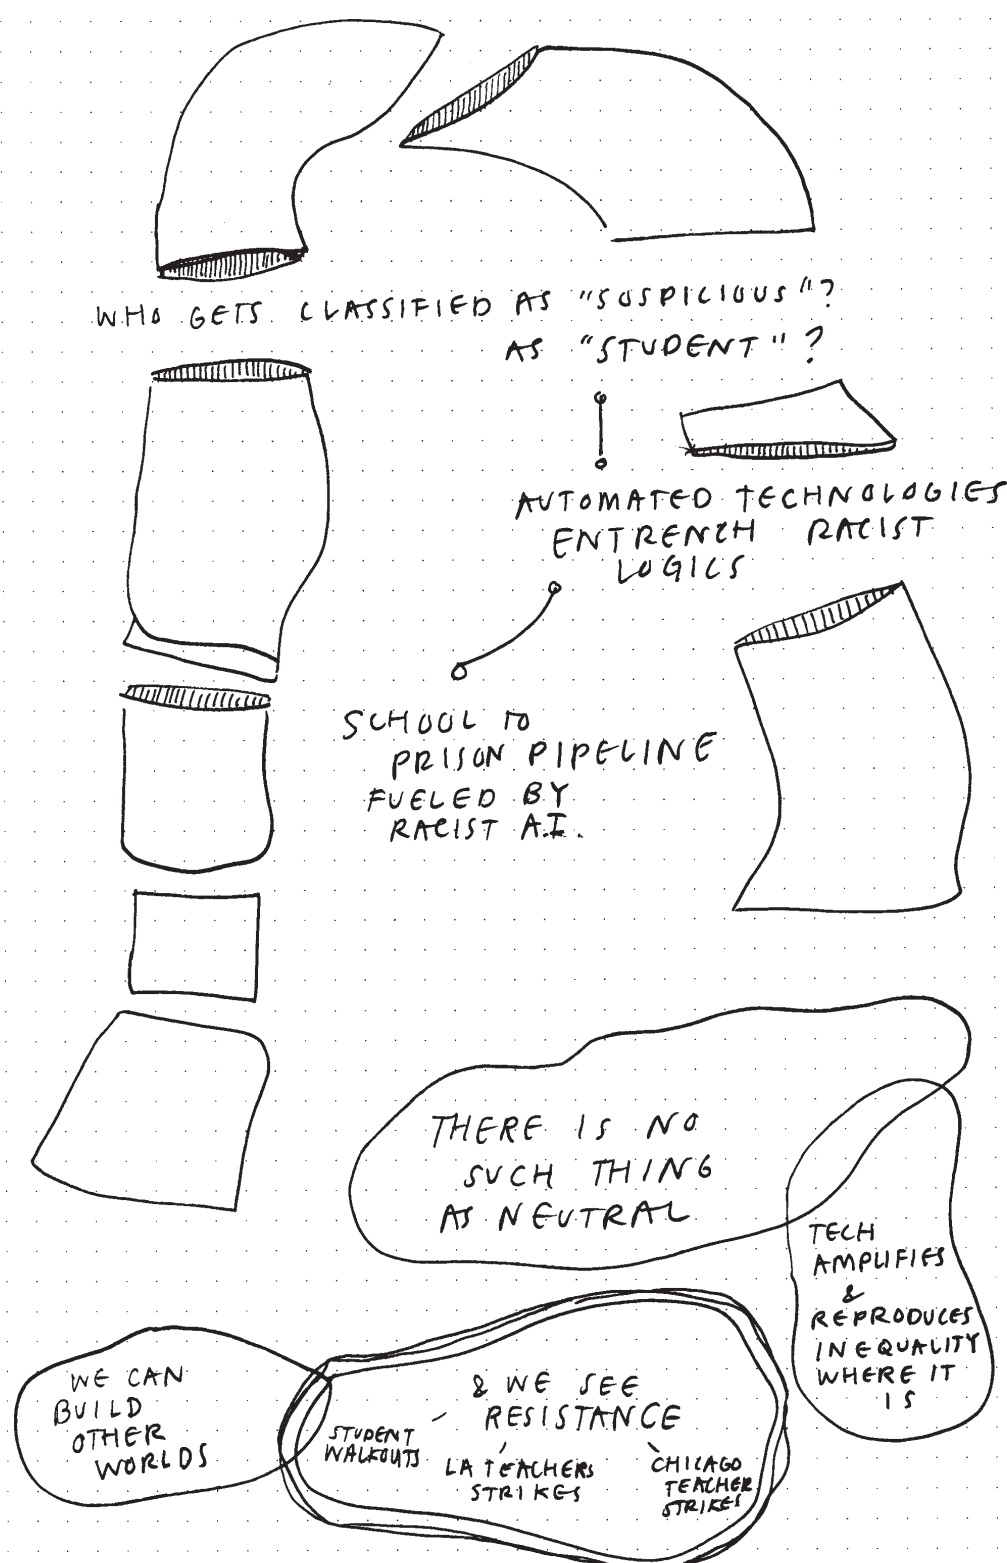 WHO GETS CLASSIFIED AS "SUSPICIOUS"?
AS "STUDENT"?
AUTOMATED TECHNOLOGIES
ENTRENCH RACIST
LOGICS
SCHOOL TO
PRISON PIPELINE
FUELED BY
RACIST A.I.
THERE IS NO
SUCH THING
AS NEUTRAL
TECH
AMPLIFIES
&
REPRODUCES
INEQUALITY
WHERE IT
IS
& WE SEE
RESISTANCE
STUDENT
WALKOUTS
LA TEACHERS
STRIKES
CHICAGO
TEACHER
STRIKES
WE CAN
BUILD
OTHER
WORLDS